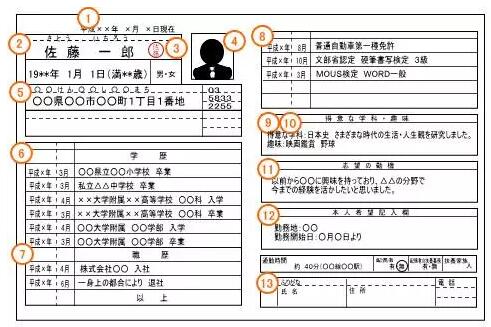 ①
平成××年 ×月 ×日現在
②
さとう いちろう
佐藤 一郎
③
④
19**年 1月 1日(満**歳)
男・女
⑤
〇〇けん〇〇し〇〇まち
〇〇県〇〇市〇〇町1丁目1番地
03
5833
2255
⑥
学 歴
平成×年 3月 〇〇県立〇〇小学校 卒業
平成×年 3月 私立△△中学校 卒業
平成×年 4月 ××大学附属××高等学校 〇〇科 入学
平成×年 3月 ××大学附属××高等学校 〇〇科 卒業
平成×年 4月 〇〇大学附属 〇〇学部 入学
平成×年 3月 〇〇大学附属 〇〇学部 卒業
⑦
職 歴
平成×年 4月 株式会社〇〇 入社
平成×年 6月 一身上の都合により 退社
以 上
⑧
平成×年 8月 普通自動車第一種免許
平成×年 10月 文部省認定 硬筆書写検定 3級
平成×年 3月 MOUS検定 WORD一般
⑨ ⑩
得意な学科・趣味
得意な学科:日本史 さまざまな時代の生活・人生観を研究しました。
趣味:映画鑑賞 野球
⑪
志望の動機
以前から〇〇に興味を持っており、△△の分野で
今までの経験を活かしたいと思いました。
⑫
本人希望記入欄
勤務地:〇〇
勤務開始日:〇月〇日より
通勤時間
約 40分(〇〇線〇〇駅)
配偶者
有・無
有・無
扶養家族
人
⑬
ふりがな
氏 名
住 所
電 話